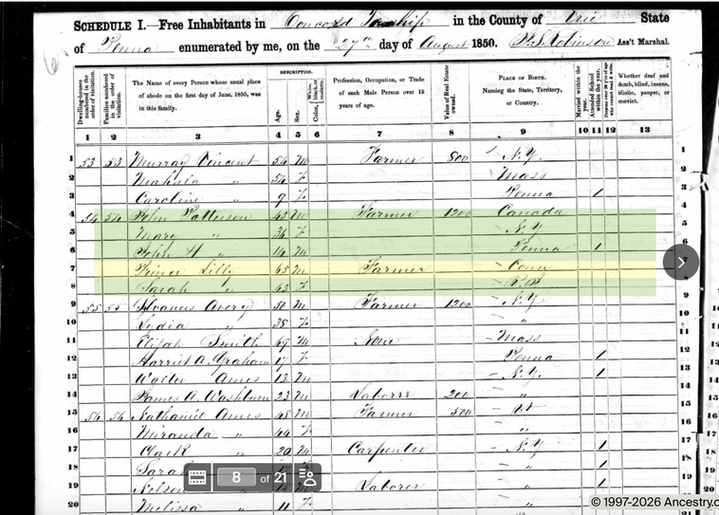 SCHEDULE I.—Free Inhabitants in Concord Township in the County of Erie State
of Penna enumerated by me, on the 27th day of August 1850. P.S. Robinson Ass't Marshal.
Dwelling-houses numbered in the order of visitation.
Families numbered in the order of visitation.
The Name of every Person whose usual place of abode on the first day of June, 1850, was in this family.
DESCRIPTION.
Age.
Sex.
Color,
Profession, Occupation, or Trade of each Male Person over 15 years of age.
Value of Real Estate owned.
PLACE OF BIRTH.
Naming the State, Territory, or Country.
Married within the year.
Attended School within the year.
Whether deaf and dumb, blind, insane, idiotic, pauper, or convict.
1 2 3 4 5 6 7 8 9 10 11 12 13
1 53 53 Murray Vincent 54 M Farmer 800 N.Y. 1
2 Mahala " 54 F Mass 2
3 Caroline " 9 F Penna 1 3
4 54 54 John Patterson 43 M Farmer 1200 Canada 4
5 Mary " 36 F N.Y 5
6 John H " 14 M Penna 1 6
7 Prince Lilly 65 M Farmer Conn
8 Sarah " 63 F R.I 8
9 55 55 Silvanus Avery 38 M Farmer 1200 N.Y 9
10 Lydia " 38 F " 10
11 Elijah Smith 69 M None Mass 11
12 Harriet A. Graham 17 F Penna 1 12
13 Walter Ames 13 M N.Y. 1 13
14 James A. Washburn 23 M Laborer 200 " 14
15 56 56 Nathaniel Ames 48 M Farmer 500 15
16 Miranda " 44 F " 16
17 Clark " 20 M Carpenter N.Y 1 17
18 Sara 1 18
19 Nelson Laborer " 1 19
20 Melissa " 11 F " 20
8 of 21
© 1997-2026 Ancestry.c